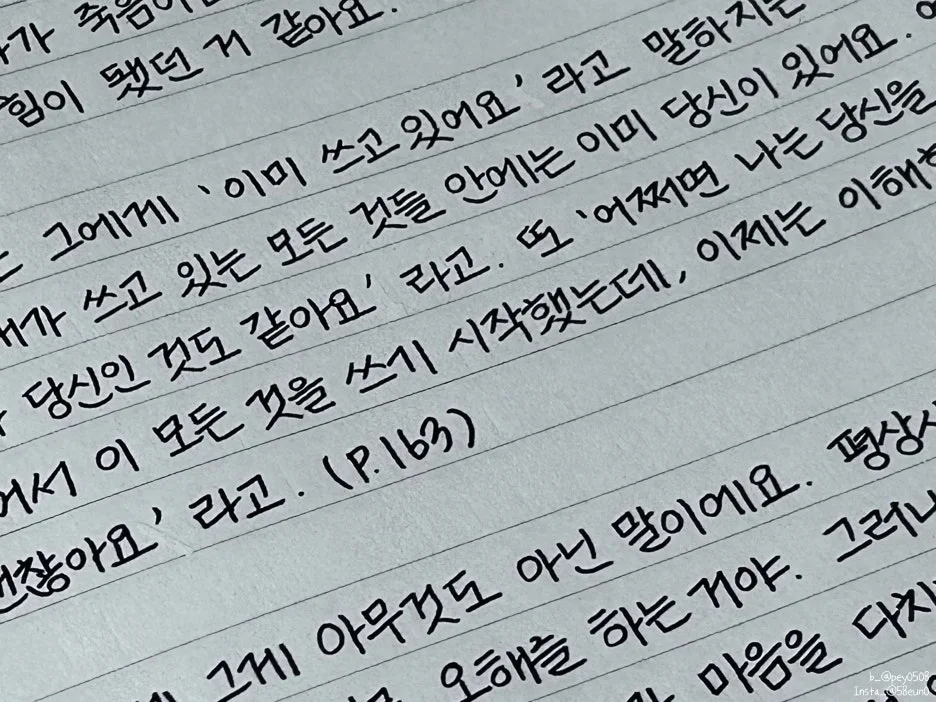 가 죽음이
힘이 됐던 거 같아요.
는 그에게 '이미 쓰고 있어요' 라고 말하지는
내가 쓰고 있는 모든 것들 안에는 이미 당신이 있어요.
당신인 것도 같아요' 라고. 또 '어쩌면 나는 당신을
어서 이 모든 것을 쓰기 시작했는데, 이제는 이해
괜찮아요' 라고. (P.163)
그게 아무것도 아닌 말이에요. 평상시
오해를 하는 거야. 그러니
마음을 다치
b_@pey0508
Insta:@58eun0